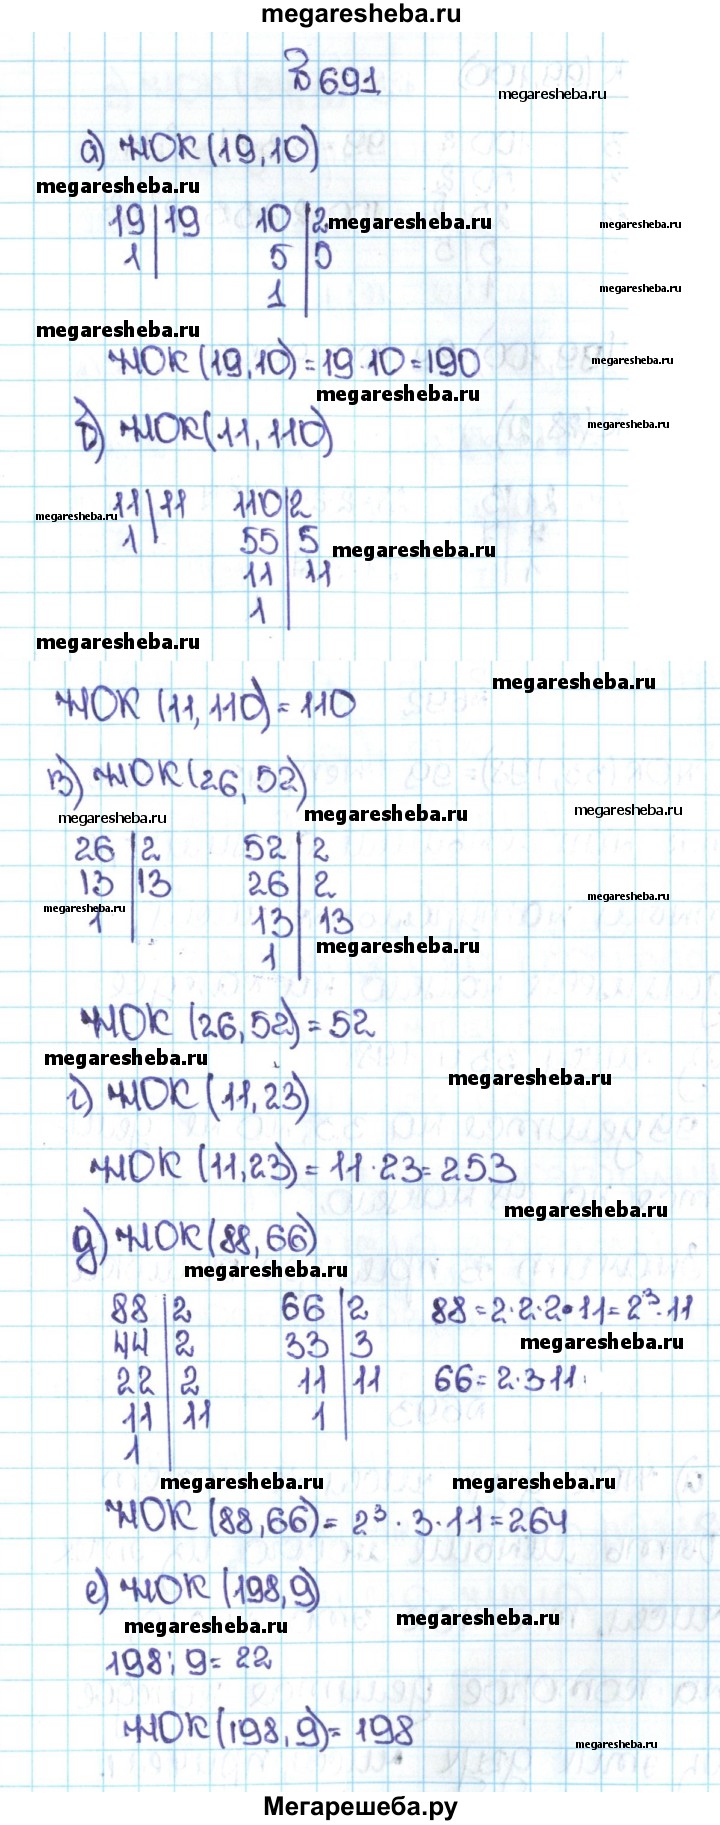 megaresheba.ru
№ 691
megaresheba.ru
а) НОК(19,10)
megaresheba.ru
19 | 19 10 | 2
megaresheba.ru
megaresheba.ru
1 | 5 | 5
1 |
megaresheba.ru
megaresheba.ru
НОК(19,10)=19·10=190
megaresheba.ru
megaresheba.ru
б) НОК(11,110)
megaresheba.ru
11 | 11 110 | 2
megaresheba.ru
1 | 55 | 5
megaresheba.ru
11 | 11
1 |
megaresheba.ru
megaresheba.ru
НОК (11,110)=110
в) НОК(26,52)
megaresheba.ru
megaresheba.ru
megaresheba.ru
26 | 2 52 | 2
13 | 13 26 | 2
megaresheba.ru
megaresheba.ru
1 | 13 | 13
megaresheba.ru
1 |
НОК (26,52)=52
megaresheba.ru
megaresheba.ru
г) НОК (11,23)
НОК (11,23)=11·23=253
megaresheba.ru
д) НОК(88,66)
megaresheba.ru
88 | 2 66 | 2 88=2·2·2·11=2³·11
44 | 2 33 | 3
megaresheba.ru
22 | 2 11 | 11 66=2·3·11
11 | 11 1 |
1 |
megaresheba.ru
megaresheba.ru
НОК (88,66)=2³·3·11=264
е) НОК (198,9)
megaresheba.ru
megaresheba.ru
198:9=22
НОК(198,9)=198
megaresheba.ru
Мегарешеба.ру